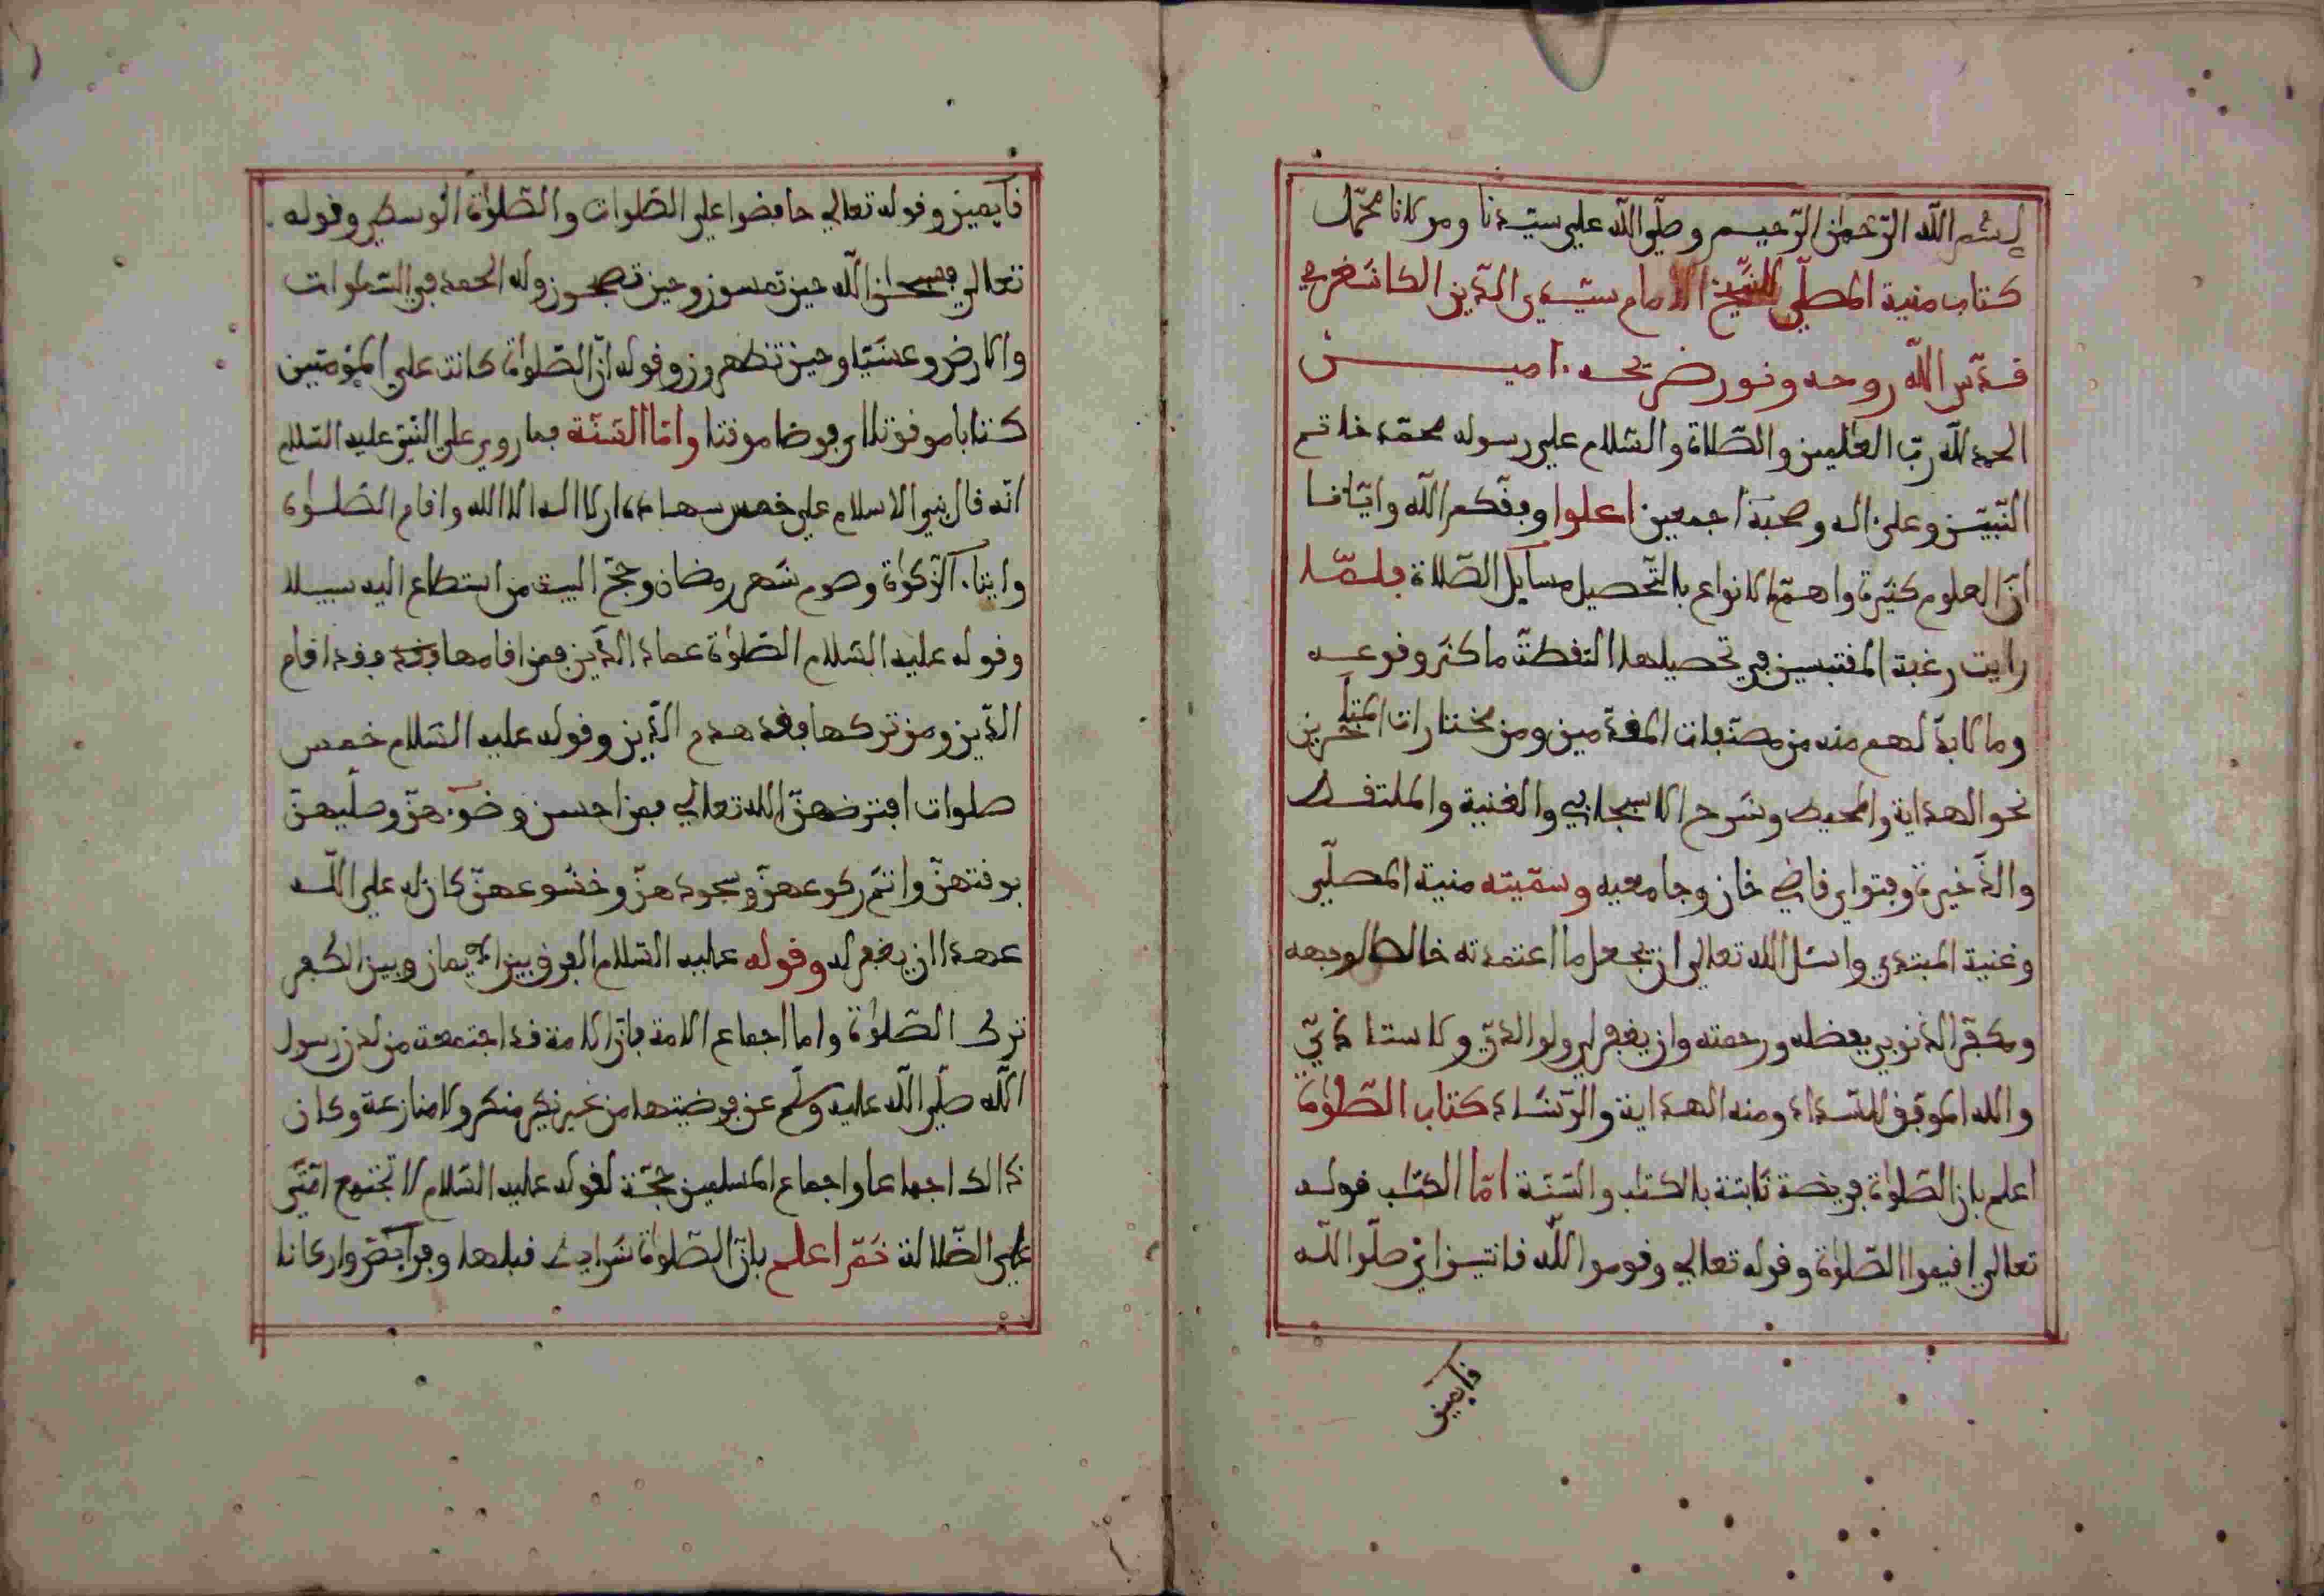 بسم الله الرّحمن الرّحيم وصلّى الله على سيّدنا ومولانا محمّد
كتاب منية المصلّي للشيخ الامام سيّدي الدّين الكاشغري
قدّس الله روحه ونور ضريحه . امين
الحمد لله ربّ العلمين والصّلاة والسّلام على رسوله محمّد خاتم
النّبيّين وعلى اله وصحبه اجمعين اعلموا وفّقكم الله وايّانا
انّ العلوم كثيرة واهمّ الانواع بالتّحصيل مسايل الصّلاة فلمّا
رايت رغبة المقتبسين في تحصيلها التقطتّ ما كثر وقوعه
وما لابدّ لهم منه من مصنّفات المقدّمين ومن مختارات المتأخّرين
نحو الهداية والمحيط وشرح الاسبيجابي والغنية والملتقط
والذّخيرة وفتواي قاضي خان وجامعيه وسمّيته منية المصلّي
وغنية المبتدي واسئل الله تعالى ان يجعل ما اعتمدته خالصا لوجهه
ومكفّر الذنوبي بفضله ورحمته وان يغفر لي ولوالديّ ولاستاذيّ
والله الموفّق للسّداد ومنه الهداية والرّشاد كتاب الصّلوة
اعلم بان الصّلوة فريضة ثابتة بالكتب والسّنّة امّا الكتب قوله
تعالى اقيموا الصّلوة وقوله تعالى وقوموا لله قانتين اي صلّوا لله
قايمين
قايمين وقوله تعالى حافضوا على الصّلوات والصّلوة الوسطى وقوله
تعالى فسبحن الله حين تمسون وحين تصبحون وله الحمد في السّموات
والارض وعشيّا وحين تظهرون وقوله انّ الصّلوة كانت على المؤمنين
كتابا موقوتا اي فرضا موقتا وامّا السّنّة فما روي على النّبيّ عليه السّلام
انّه قال بني الاسلام على خمس شهادة ان لا اله الا الله واقام الصّلوة
وايتاء الزّكوة وصوم شهر رمضان وحجّ البيت من استطاع اليه سبيلا
وقوله عليه السّلام الصّلوة عماد الدّين فمن اقامها فقد اقام
الدّين ومن تركها فقد هدم الدّين وقوله عليه السّلام خمس
صلوات افترضهنّ الله تعالى فمن احسن وضوءهنّ وصلّيهنّ
بوقتهنّ واتمّ ركوعهنّ وسجودهنّ وخشوعهنّ كان له على الله
عهدا ان يغفر له وقوله عليه السّلام الفرق بين الايمان وبين الكفر
ترك الصّلوة واما اجماع الامة فانّ الامة قد اجتمعت من لدن رسول
الله صلّى الله عليه وسلّم عن فرضيتها من غير نكير منكر ولا منازعة وكان
ذالك اجماعا واجماع المسلمين حجّة لقوله عليه السّلام لا تجتمع امّتي
على الضّلالة ثمّ اعلم بانّ الصّلوة شرايط قبلها وفرايض واركانا